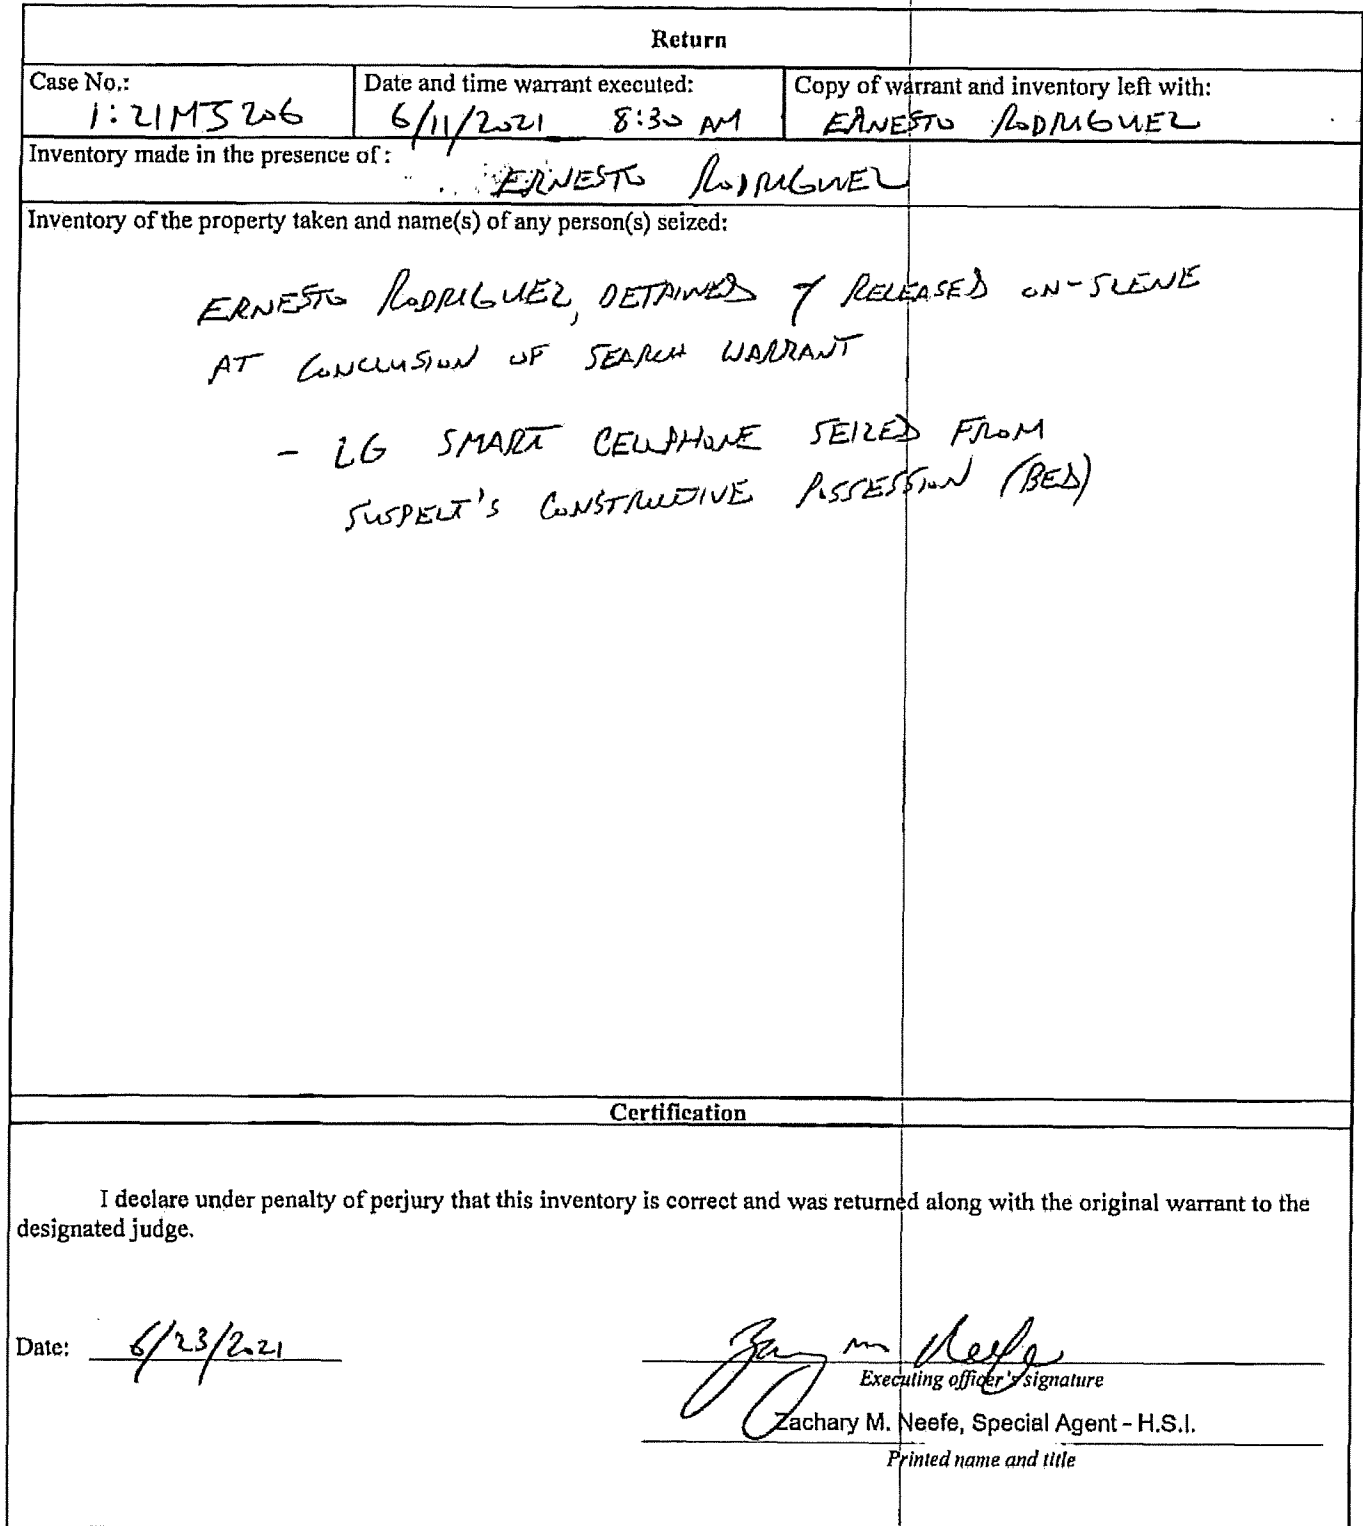 Return
Case No.: Date and time warrant executed: Copy of warrant and inventory left with:
1:21MJ206 6/11/2021 8:30 AM ERNESTO RODRIGUEZ
Inventory made in the presence of :
ERNESTO RODRIGUEZ
Inventory of the property taken and name(s) of any person(s) seized:
ERNESTO RODRIGUEZ, DETAINED & RELEASED ON-SCENE
AT CONCLUSION OF SEARCH WARRANT
- LG SMART CELLPHONE SEIZED FROM
SUSPECT'S CONSTRUCTIVE POSSESSION (BED)
Certification
I declare under penalty of perjury that this inventory is correct and was returned along with the original warrant to the
designated judge.
Date: 6/23/2021
Zary M Neefe
Executing officer's signature
Zachary M. Neefe, Special Agent - H.S.I.
Printed name and title